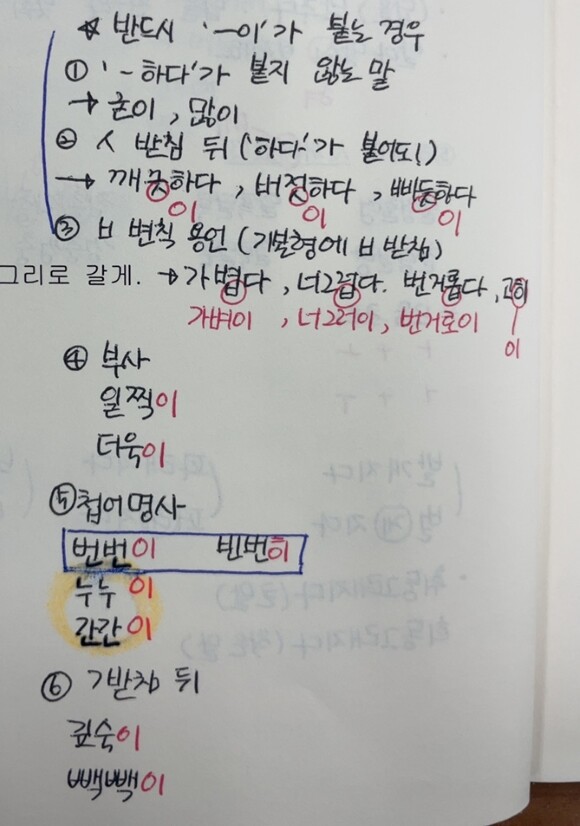 ☆ 반드시 '-이'가 붙는 경우
① '-하다'가 붙지 않는 말
→ 굳이, 많이
② ㅅ 받침 뒤 ('하다'가 붙어도!)
→ 깨긋하다, 버젓하다, 삐듯하다
이 이 이
③ ㅂ 변칙 용언 (기본형에 ㅂ 받침)
그리로 갈게. → 가볍다, 너그럽다. 번거롭다, 고히
가벼이, 너그러이, 번거로이 이
④ 부사
일찍이
더욱이
⑤ 첩어명사
번번이 빈번히
누누이
간간이
⑥ ㄱ받침 뒤
깊숙이
빽빽이